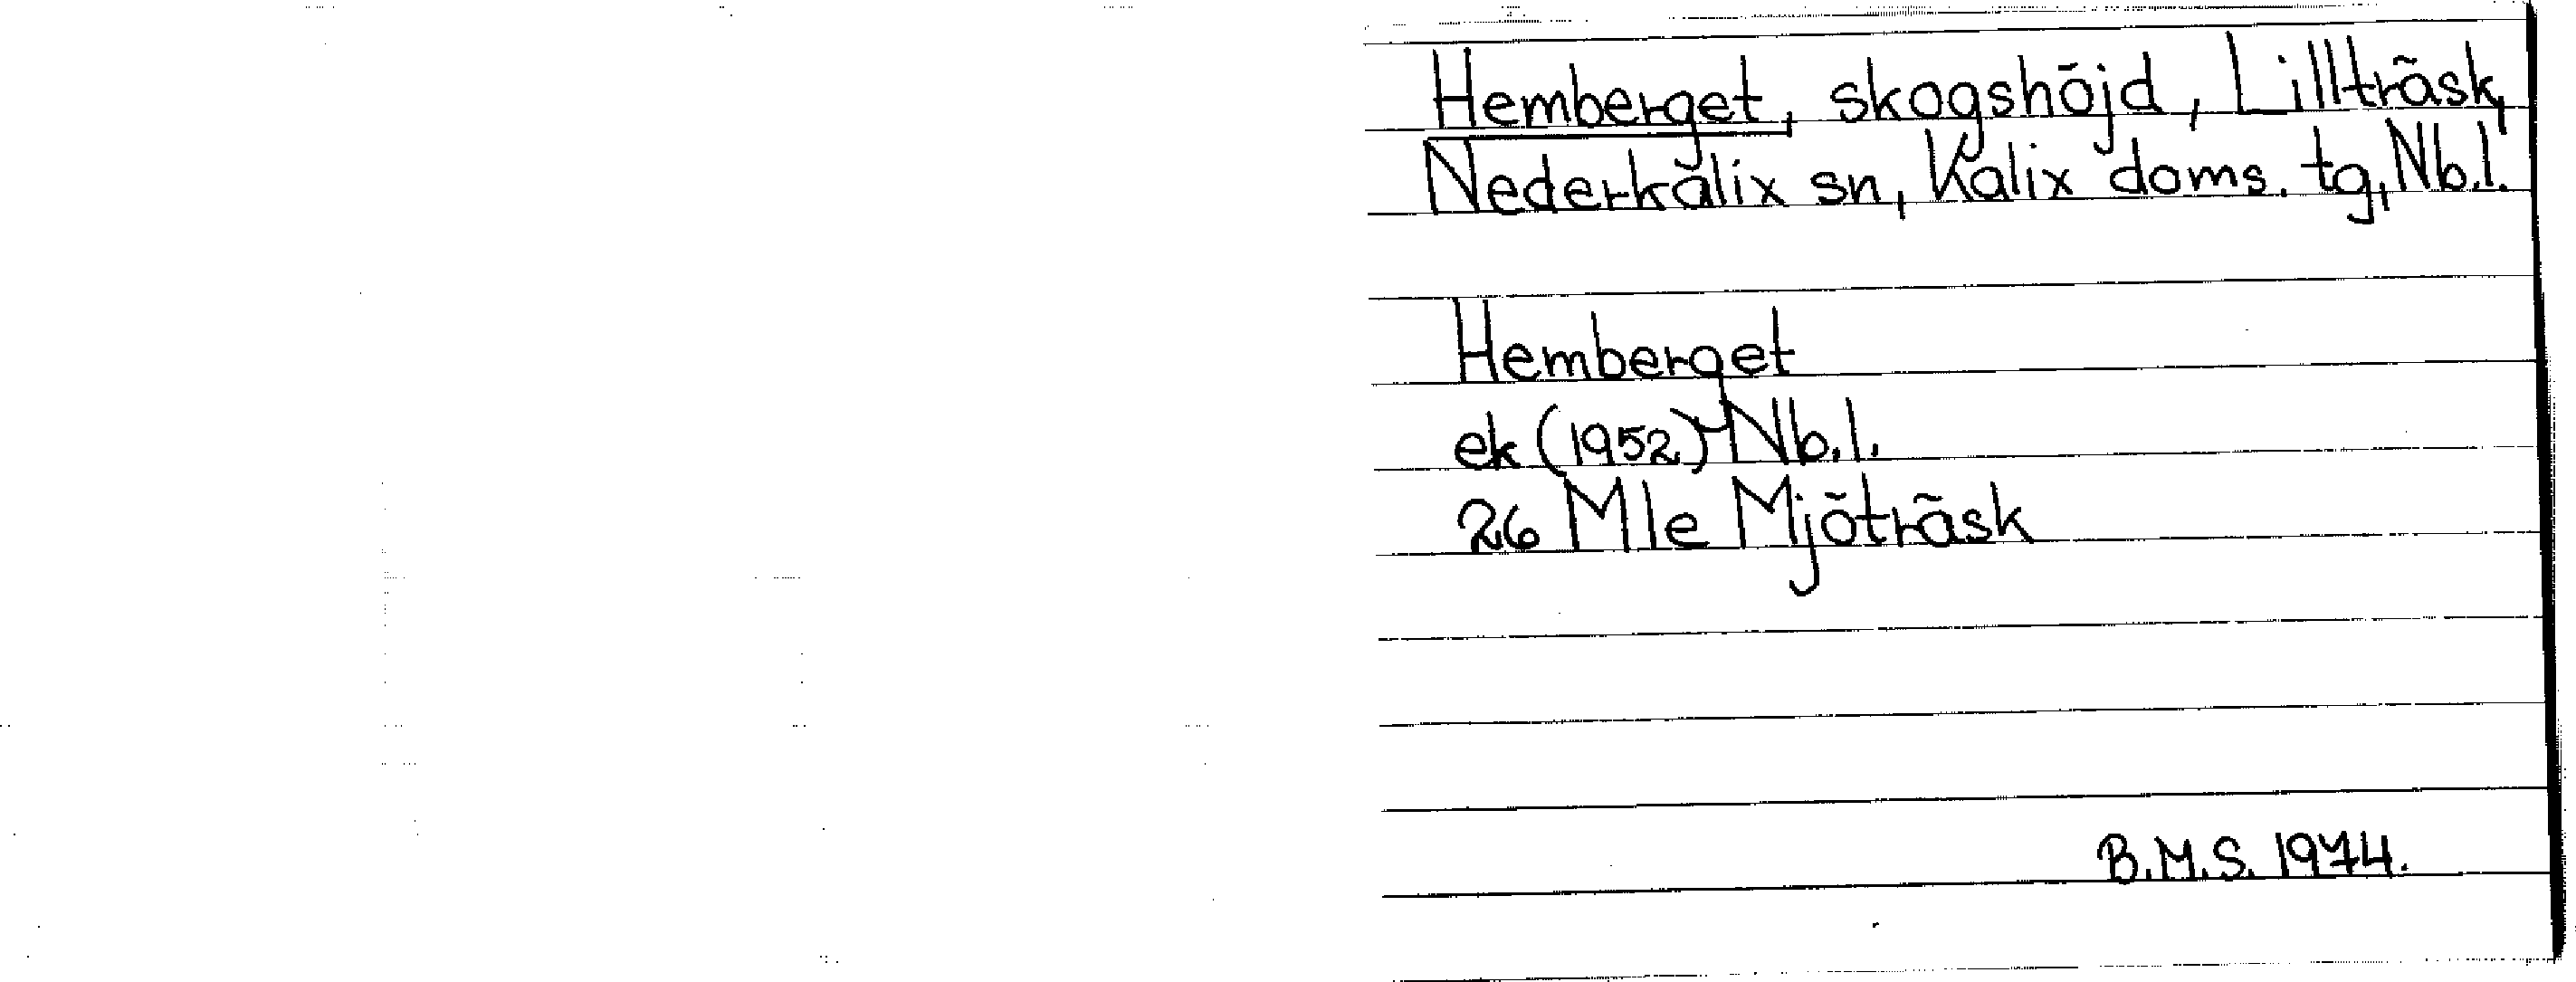 Hemberget, skogshöjd, Lillträsk,
Nederkalix sn, Kalix doms. tg, Nb.l.
Hemberget
ek (1952) Nb.l.
26 Mle Mjöträsk
B.M.S. 1974.